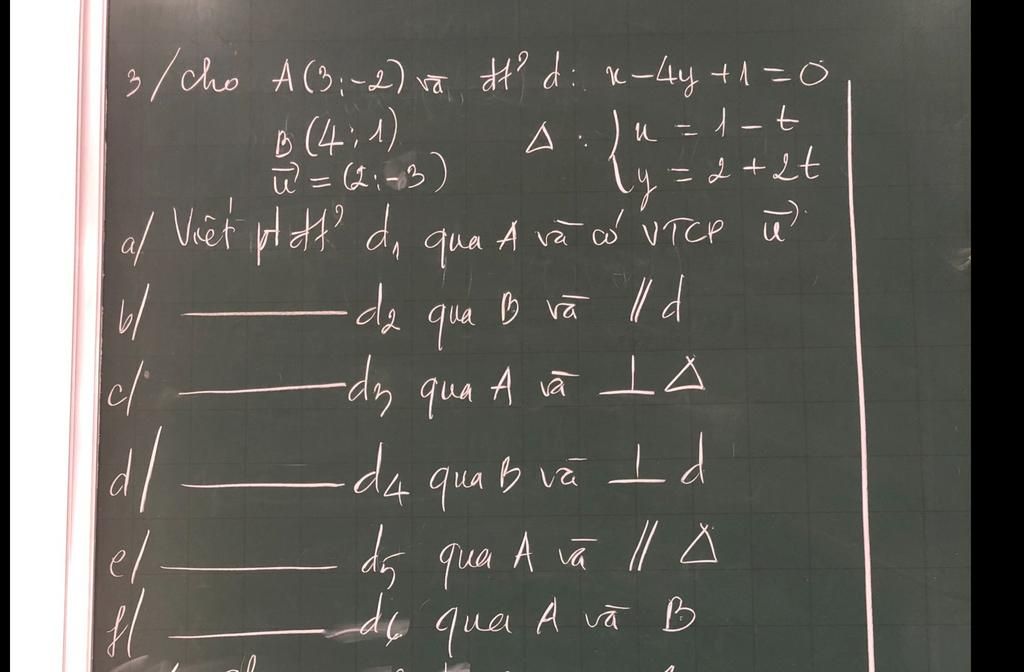 3/ cho A(3;-2) và đt² d: x-4y+1=0
B(4;1) Δ: { x = 1-t
u⃗ = (2;-3) y = 2+2t
a/ Viết pt đt² d₁ qua A và có VTCP u⃗
b/ ——— d₂ qua B và // d
c/ ——— d₃ qua A và ⊥ Δ
d/ ——— d₄ qua B và ⊥ d
e/ ——— d₅ qua A và // Δ
f/ ——— d₆ qua A và B